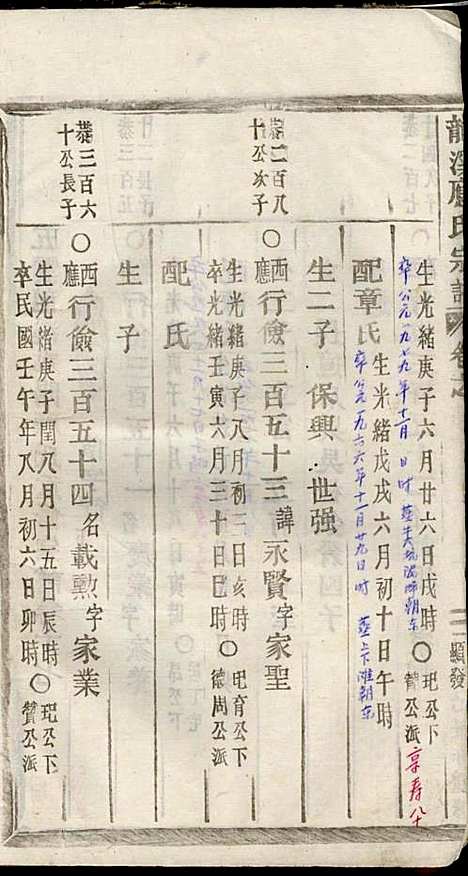 龍溪應氏宗譜 卷之
顯發
生光緒庚子六月廿六日戌時 〇 玘公下贊公派 享寿八十
卒公元一九七九年十二月 日时
配章氏 生光緒戊戌六月初十日午時
卒公元一九六六年十一月廿九日时 葬上下滩朝东
生二子 保興 世强
恭二百八十公次子 〇 西應行儉三百五十三 諱永賢 字家聖
生光緒庚子八月初二日亥時
卒光緒壬寅六月三十日巳時 〇 玘育公下德周公派
配 氏
生 子
恭三百六十公長子 〇 西應行儉三百五十四 名載勲 字家業
生光緒庚子閏八月十五日辰時
卒民國壬午年八月初六日卯時 〇 玘公下贊公派